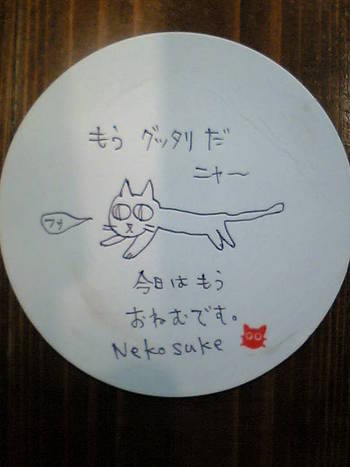 もう グッタリ だ
ニャ〜
フゥ
今日は もう
おねむです。
Nekosuke